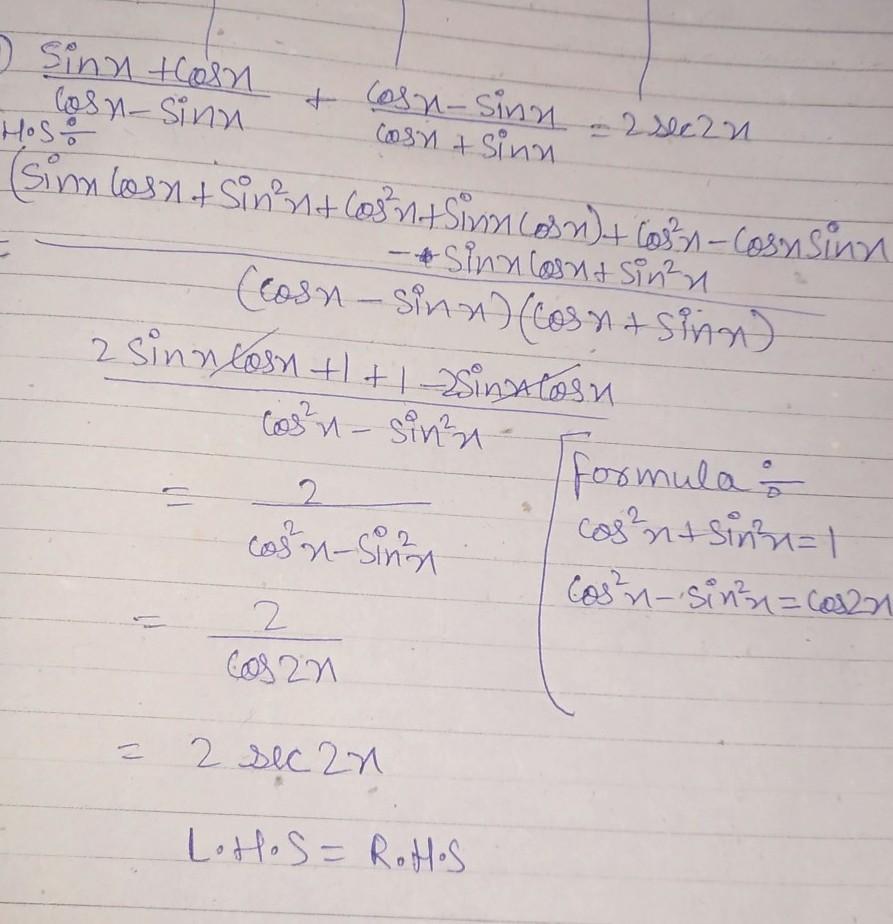 ) (Sinx + Cosx)/(Cosx - Sinx) + (Cosx - Sinx)/(Cosx + Sinx) = 2 sec2x
H.S ÷
= ((Sinx Cosx + Sin²x + Cos²x + Sinx Cosx) + Cos²x - Cosx Sinx
- Sinx Cosx + Sin²x)/((Cosx - Sinx)(Cosx + Sinx))
(2 Sinx Cosx + 1 + 1 - 2Sinx Cosx)/(Cos²x - Sin²x)
= 2/(Cos²x - Sin²x)
= 2/(Cos2x)
= 2 sec2x
L.H.S = R.H.S
formula ÷
Cos²x + Sin²x = 1
Cos²x - Sin²x = Cos2x